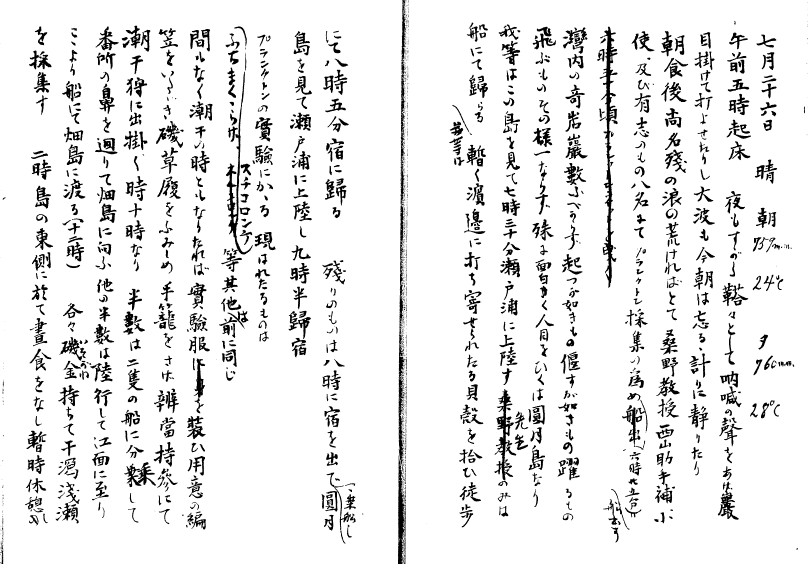 七月二十六日 晴 朝 757m.m. 24°C 夕 760m.m. 28°C
午前五時起床 夜もすがら鞳々として吶喊の聲をあげ巖
目掛けて打よせたりし大波も今朝は忘るゝ計りに静りたり
朝食後尚名残の浪の荒ければとて桑野教授西山助手補小
使、及び有志のもの八名にてプランクトン採集の為め船出(六時廿五分)
船出す
六時五十分頃
灣内の奇岩巖數ふべからず起つが如きもの偃すが如きもの躍るもの
飛ぶものその様一ならず殊に面白く人目をひくは圓月島なり
我等はこの島を見て七時三十分瀬戸浦に上陸す桑野教授のみは
先生
船にて歸らる 暫く濵邊に打ち寄せられたる貝殻を拾ひ徒歩
我等は
にて八時五分宿に歸る 残りのものは八時に宿を出で圓月
乗船し
島を見て瀬戸浦に上陸し九時半歸宿
プランクトンの實驗にかゝる 現はれたるものは
スチコロンケ 等其他は前に同じ
間もなく潮干の時となりたれば實驗服を装ひ用意の編
笠をいたゞき磯草履をふみしめ手籠をさげ辨當持參にて
潮干狩に出掛く時十時なり 半數は二隻の船に分乗して
番所の鼻を廻りて畑島に向ふ他の半數は陸行して江面に至り
こゝより船にて畑島に渡る(十二時) 各々磯金持ちて干潟淺瀬
いそがね
を採集す 二時島の東側に於て晝食をなし暫時休憩